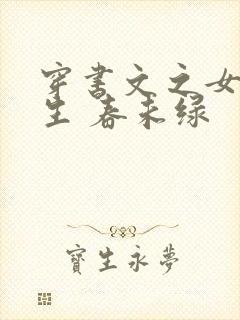 穿書文之女
生 春未绿
寶生永夢